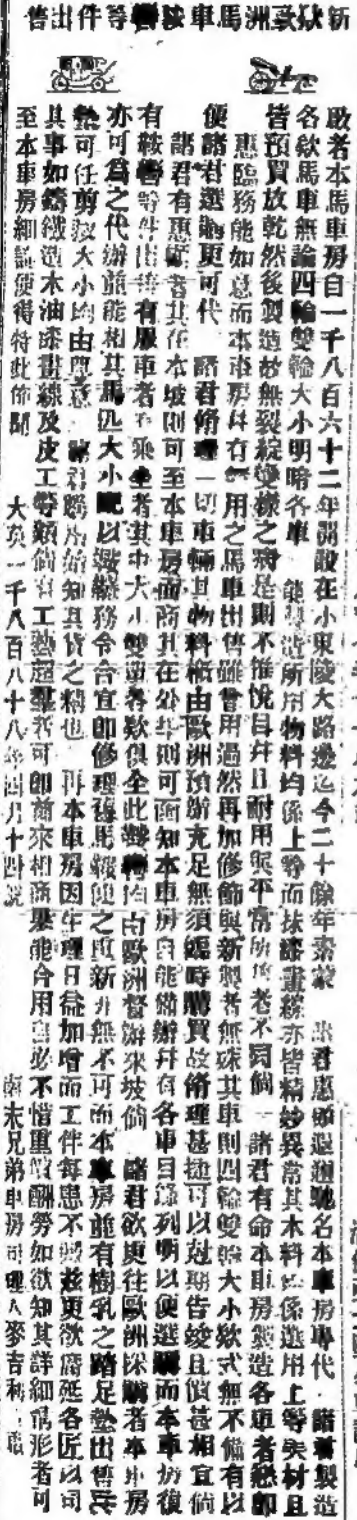 新款歐洲馬車鞍轡等件出售
啟者本馬車房自一千八百六十二年開設在小東陵大路邊迄今二十餘年素蒙 眾君惠顧遐邇馳名本車房專代 諸君製造
名款馬車無論四輪雙輪大小明暗各車 能製造所用物料均係上等而抹漆畫線亦皆精妙異常其木料 係選用上等美材且
皆預買放乾然後製造故無裂綻變樣之 是則不惟悅目并且耐用與平常所 者不同倘 諸君有命本車房製造各 者懇即
惠臨務能如意而本車房并有無用之馬車出售雖曾用過然再加修飾與新製者無 其車則四輪雙輪大小款式無不備有以
便諸君選購更可代 諸君修理一切車輛其物料 由歐洲預辦充足無須臨時購買故修理甚捷可以剋期告竣且價甚相宜倘
諸君有惠顧者其在本坡則可至本車房面商其在外埠則可函知本車房自能備辦并有各車目錄列明以便選購而本車房復
有鞍轡等件出售有服車者 乘坐者其中大小雙單各款俱全此 均由歐洲督辦來坡倘 諸君欲更往歐洲採購者本車房
亦可為之代辦並能相其馬匹大小 以 務令合宜即修理舊馬鞍使之 新亦無不可而本車房並有樹乳之踏足墊出售其
墊可任剪裁大小均由尊意 諸君 始知其貨之精也 再本車房因生理日益加增而工伴每患不敷茲更欲廣延各匠以司
其事如鑄鐵造木油漆畫線及皮工等類倘有工藝超群者可即前來相商果能合用自必不惜重資酬勞如欲知其詳細情形者可
至本車房細談便得特此佈聞 大英一千八百八十八年四月十四
末兄弟車房司理人麥吉利